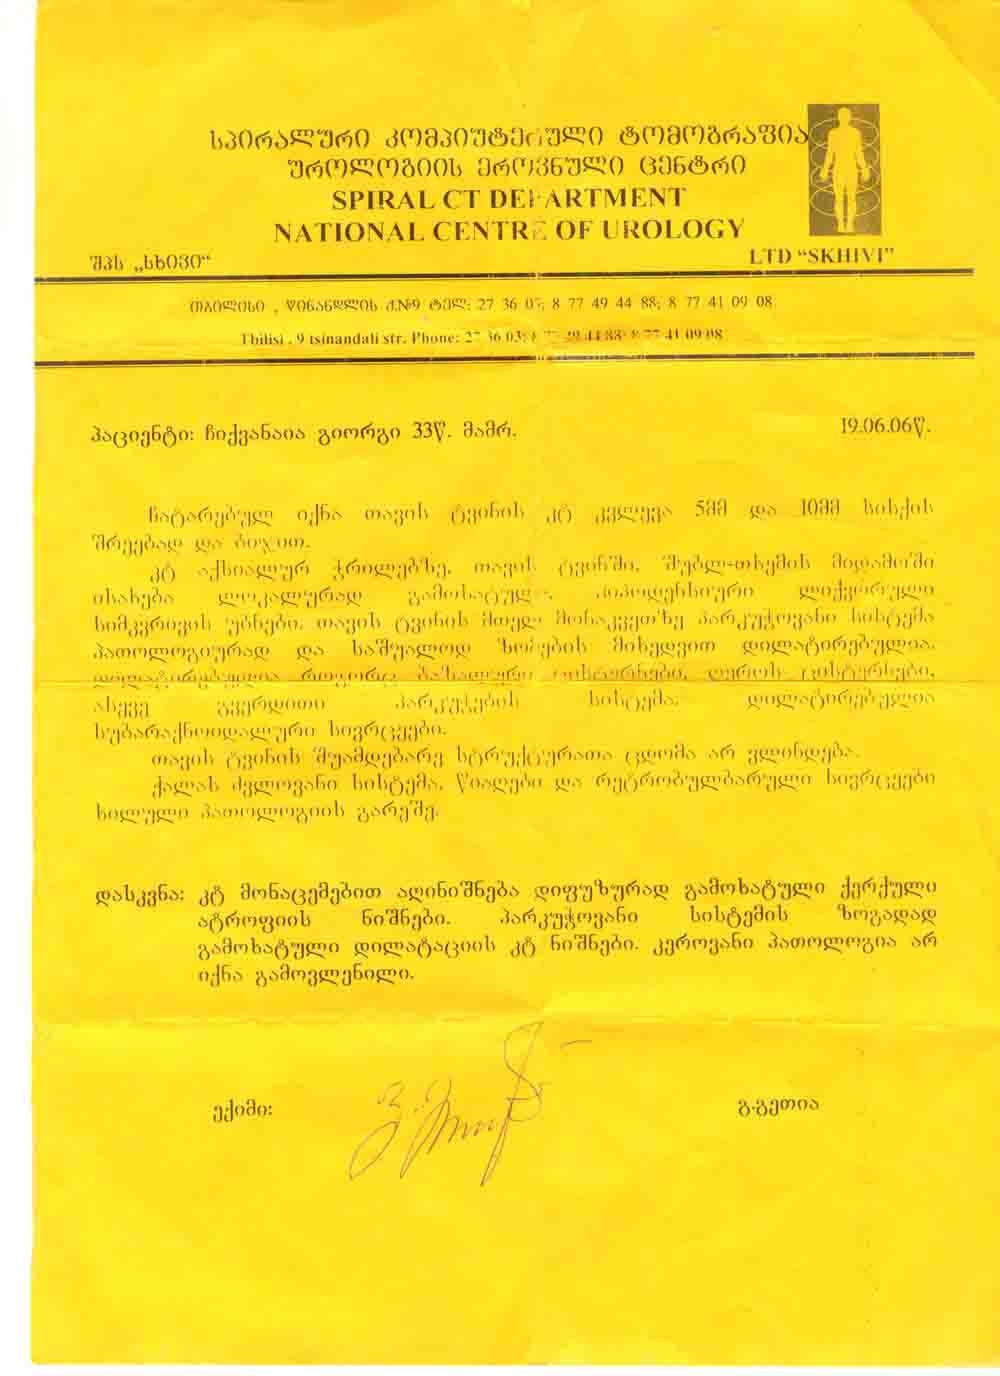 სპირალური კომპიუტერული ტომოგრაფია
უროლოგიის ეროვნული ცენტრი
SPIRAL CT DEPARTMENT
NATIONAL CENTRE OF UROLOGY
შპს „სხივი“
LTD “SKHIVI”
თბილისი , წინანდლის ქ.№9 ტელ: 27 36 03; 8 77 49 44 88; 8 77 41 09 08
Tbilisi . 9 tsinandali str. Phone: 27 36 03; 8 77 49 44 88; 8 77 41 09 08
პაციენტი: ჩიქვანაია გიორგი 33წ. მამრ.
19.06.06წ.
ჩატარებულ იქნა თავის ტვინის კტ კვლევა 5მმ და 10მმ სისქის
შრეებად და ბიჯით.
კტ აქსიალურ ჭრილებზე, თავის ტვინში, შუბლ-თხემის მიდამოში
ისახება ლოკალურად გამოხატული, ჰიპოდენსიური ლიქვორული
სიმკვრივის უბნები. თავის ტვინის მთელ მონაკვეთზე პარკუჭოვანი სისტემა
პათოლოგიურად და საშუალოდ ზომების მიხედვით დილატირებულია.
დილატირებულია როგორც ბაზალური ცისტერნები, ღეროს ცისტერნები,
ასევე გვერდითი პარკუჭების სისტემა. დილატირებულია
სუბარაქნოიდალური სივრცეები.
თავის ტვინის შუამდებარე სტრუქტურათა ცდომა არ ვლინდება.
ქალას ძვლოვანი სისტემა, წიაღები და რეტრობულბარული სივრცეები
ხილული პათოლოგიის გარეშე.
დასკვნა: კტ მონაცემებით აღინიშნება დიფუზურად გამოხატული ქერქული
ატროფიის ნიშნები. პარკუჭოვანი სისტემის ზოგადად
გამოხატული დილატაციის კტ ნიშნები. კეროვანი პათოლოგია არ
იქნა გამოვლენილი.
ექიმი:
გ.გეთია